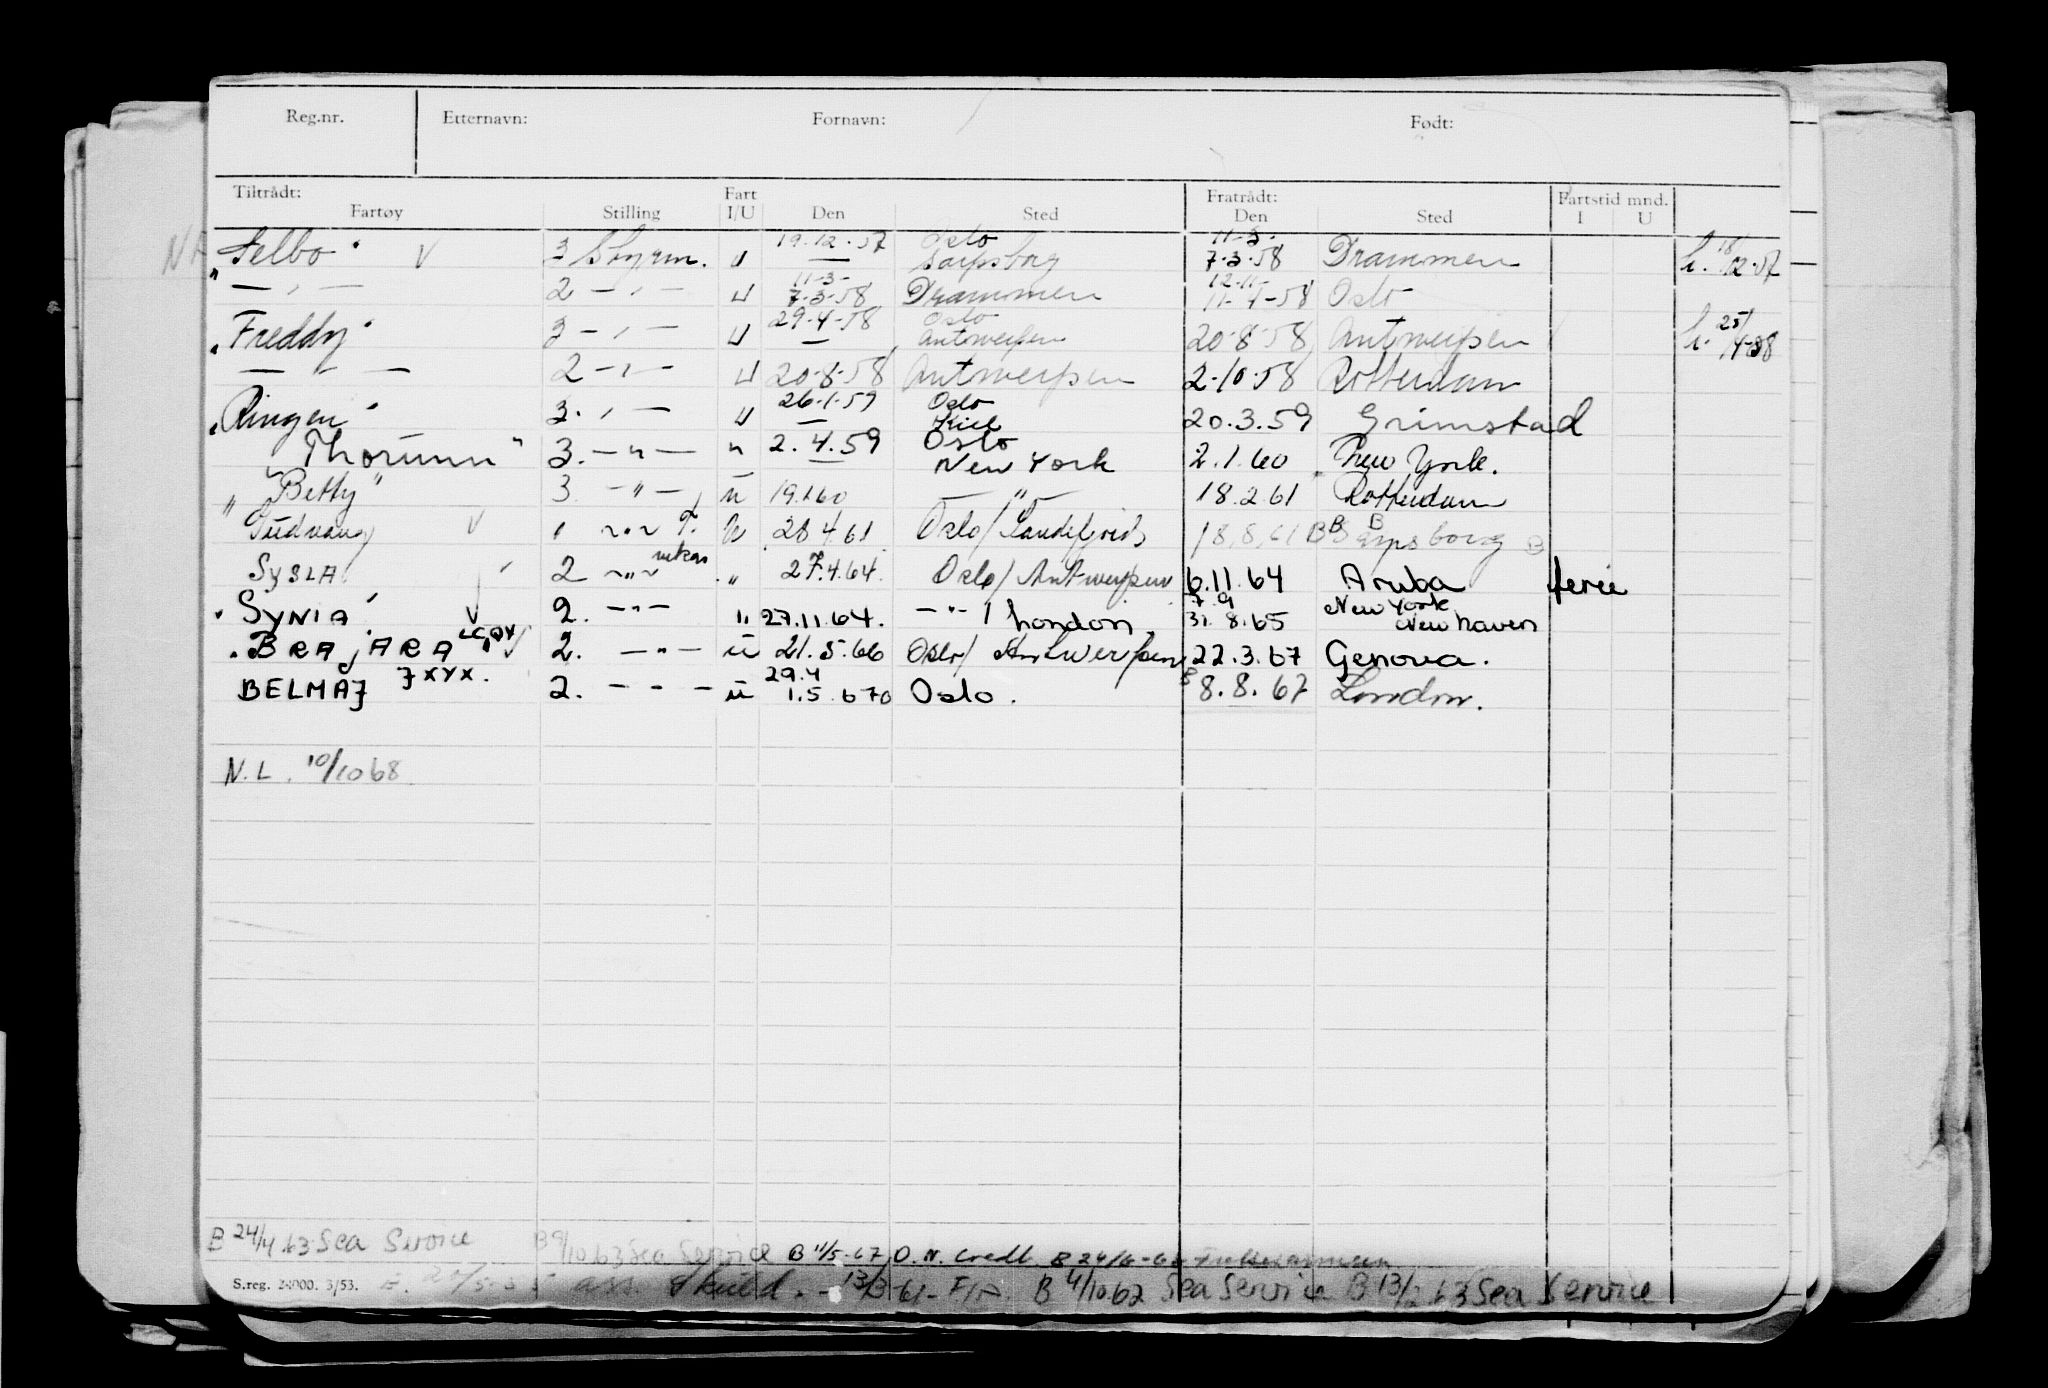 Reg.nr. Etternavn: Fornavn: Født:
Tiltrådt: Fartøy Stilling Fart I/U Den Sted Fratrådt: Den Sted Fartstid mnd. I U
"Selbo" V 3 Styrm. U 19.12.57 Oslo Sarpsborg 11-3- 7-3-58 Drammen 18/12-57
— " — 2 — " — U 11-3- 7-3-58 Drammen 12-11- 11-4-58 Oslo
"Freddy" 3 — " — U 29-4-58 Oslo Antwerpen 20-8-58 Antwerpen 25/4-58
— " — 2 — " — U 20-8-58 Antwerpen 2-10-58 Rotterdam
"Ringen" 3. " — U 26-1-59 Oslo Kiel 20.3.59 Grimstad
Thorunn" 3. — " — " 2.4.59 Oslo New York 2.1.60 New York.
"Betty" 3 — " — U 19.1.60 — " — 18.2.61 Rotterdam
"Gudvang V 1 — " — T. U 28.4.61 Oslo/Sandefjord 18.8.61 B B Sarpsborg B
SYSLA 2 — " — vikar " 27.4.64. Oslo/Antwerpen 6.11.64 Aruba ferie
"SYNIA" V 2. — " — " 27.11.64. — " — / London. 7.9 31.8.65 New York New haven
"BRAJARA" LCQV V 2. — " — U 21.5.66 Oslo/Antwerpen 22.3.67 Genova.
BELMAJ JXYX. 2. — " — U 29.4 1.5.670 Oslo. 8.8.67 London.
N.L. 10/10 68
B 24/4.63 Sea Service B 9/10.63 Sea Service B 11/5-67 O.N. Credt. B 24/6-6
S.reg. 24000. 3/53. ass. Skuld. - 13/3 61- F/A. B 4/10.62 Sea Service B 13/2.63 Sea Service